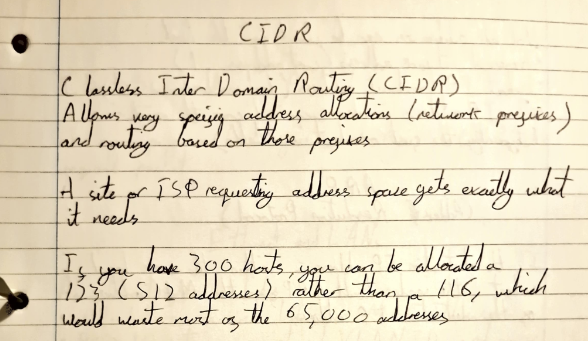 CIDR
Classless Inter Domain Routing (CIDR)
Allows very specific address allocations (network prefixes)
and routing based on those prefixes
A site or ISP requesting address space gets exactly what
it needs
If you have 300 hosts, you can be allocated a
/23 (512 addresses) rather than a /16, which
would waste most of the 65,000 addresses